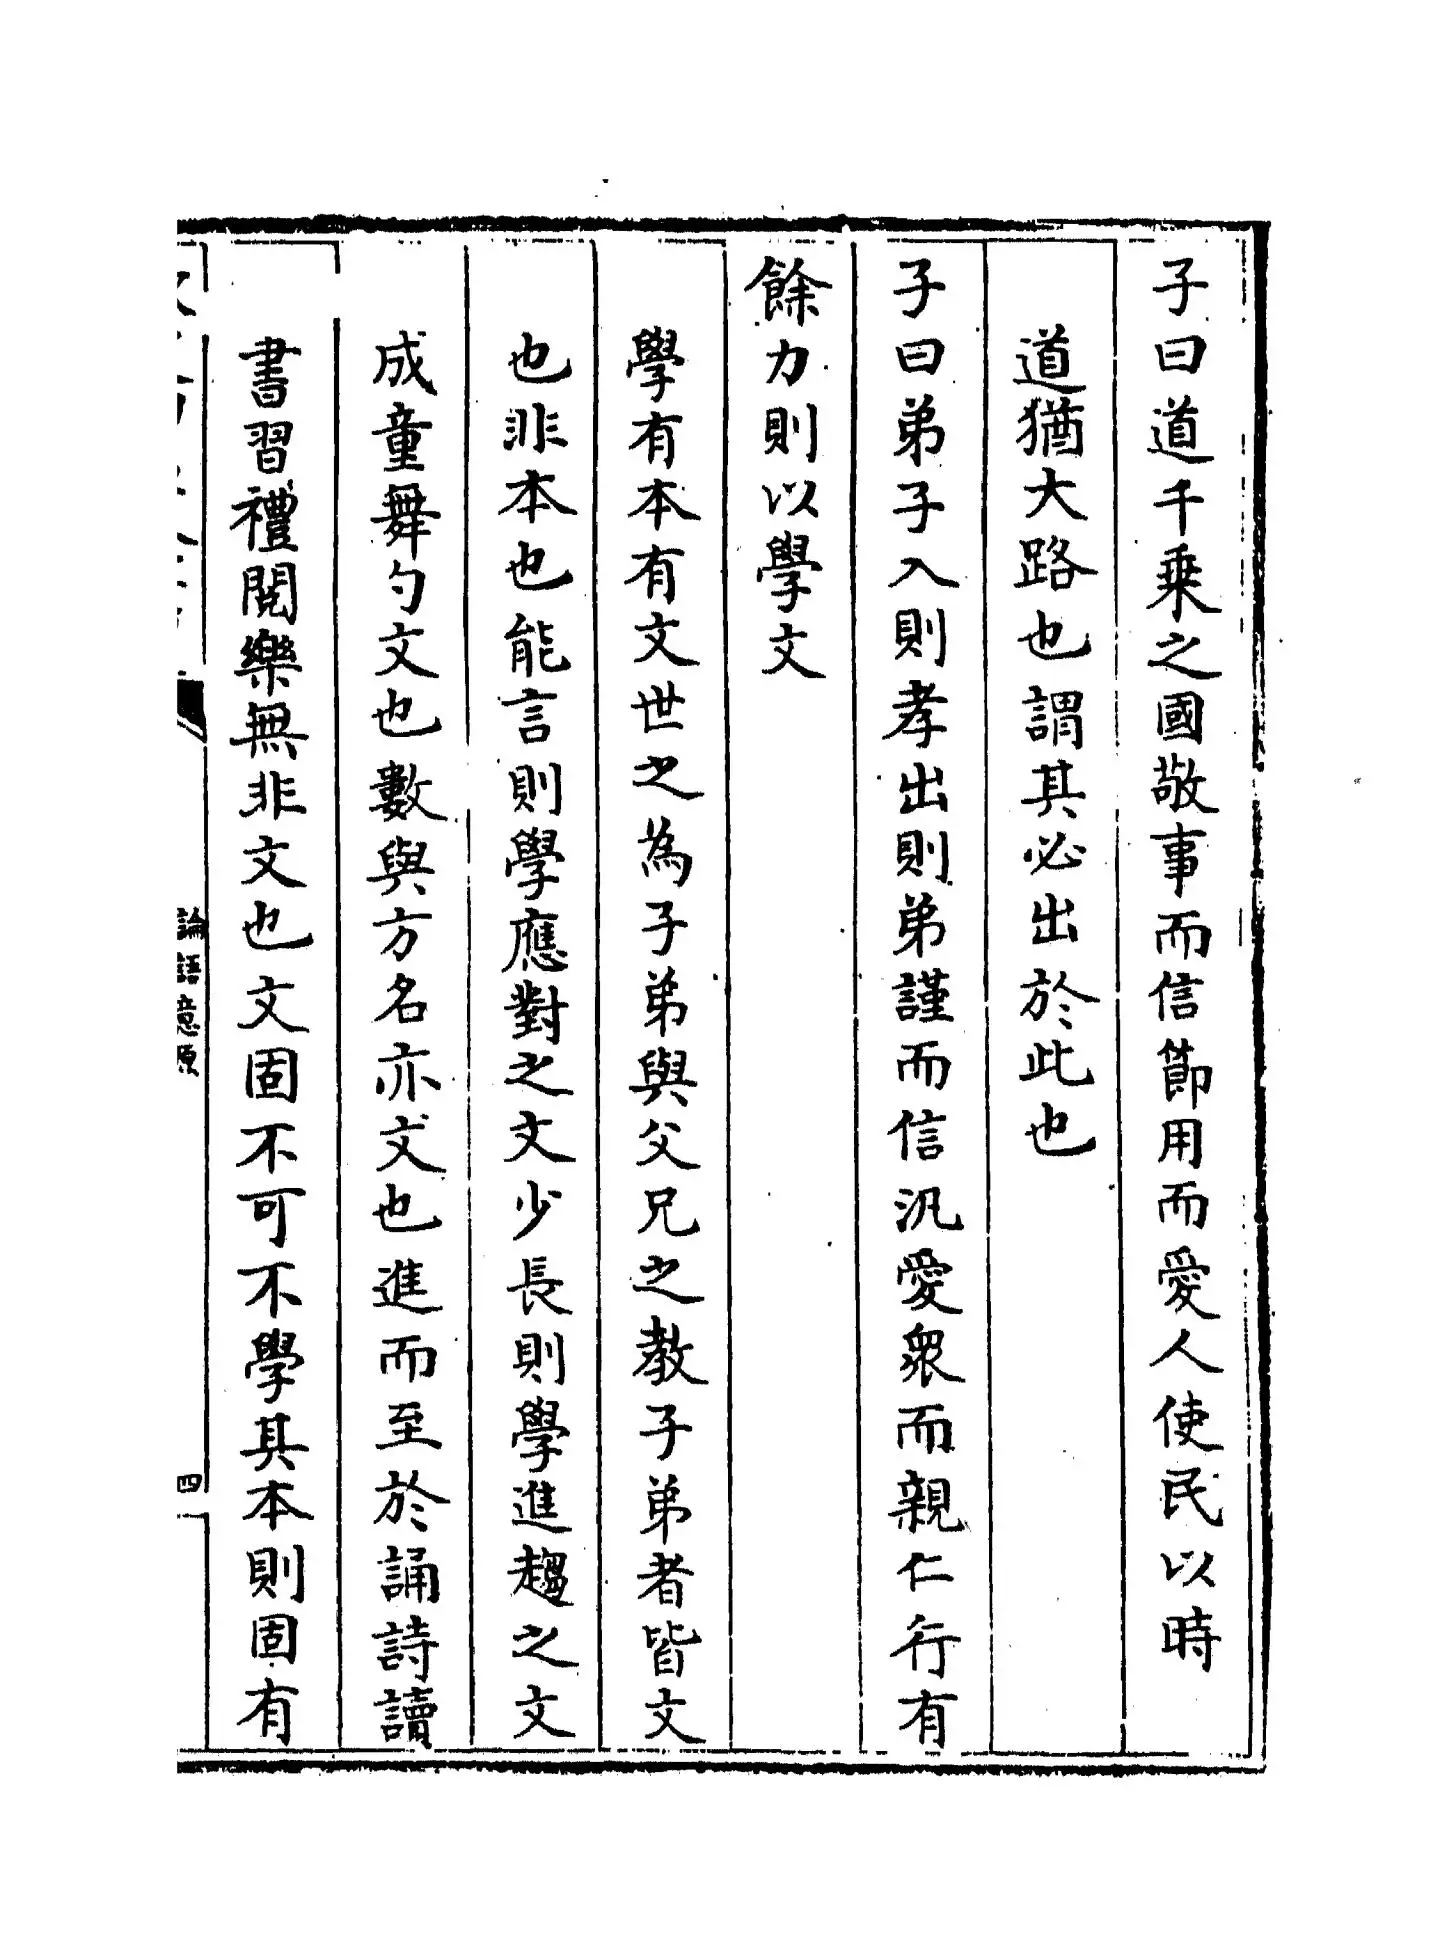 子曰道千乗之國敬事而信節用而愛人使民以時
道猶大路也謂其必出於此也
子曰弟子入則孝出則弟謹而信汎愛衆而親仁行有
餘力則以學文
學有本有文世之為子弟與父兄之教子弟者皆文
也非本也能言則學應對之文少長則學進趨之文
成童舞勺文也數與方名亦文也進而至於誦詩讀
書習禮閱樂無非文也文固不可不學其本則固有
論語意原
四